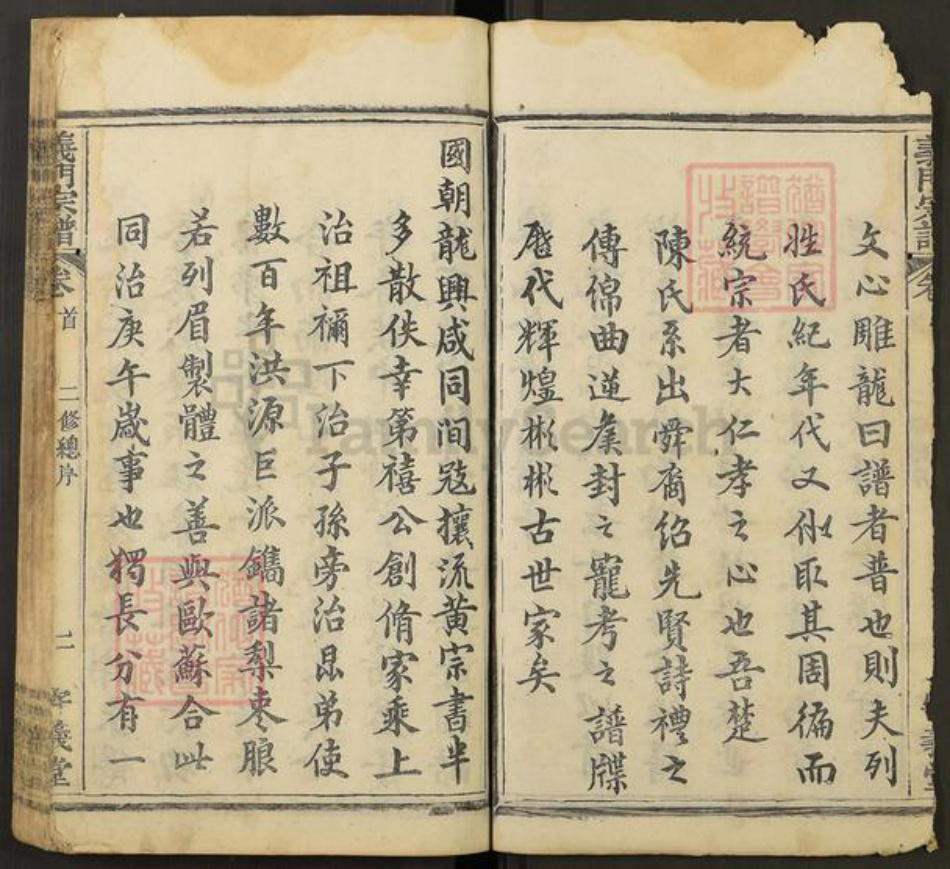 文心雕龍曰譜者普也則夫列
姓氏紀年代又似取其周徧而
統宗者大仁孝之心也吾楚
陳氏系出舜裔紹先賢詩禮之
傳綿曲逆矦封之寵考之譜牒
歷代輝煌彬彬古世家矣
國朝龍興咸同間寇攘流黃宗書半
多散佚幸第禧公創脩家乘上
治祖禰下治子孫旁治昆弟使
數百年洪源巨派鐫諸梨枣朖
若列眉製體之善與歐蘇合此
同治庚午歲事也獨長分有一
義門宗譜 卷首 二修總序 二 孝義堂
FamilySearch